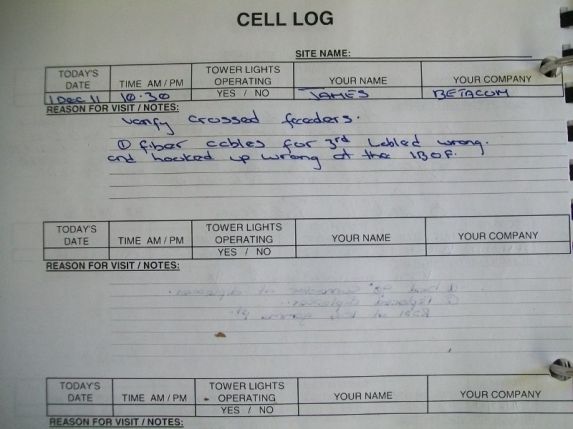 CELL LOG
SITE NAME:
TODAY'S DATE TIME AM / PM TOWER LIGHTS OPERATING YOUR NAME YOUR COMPANY
1 Dec 11 10:30 YES / NO JAMES BETACOM
REASON FOR VISIT / NOTES:
Verify crossed feeders.
① fiber cables for 3rd Labled wrong.
and hooked up wrong at the IBOF.
TODAY'S DATE TIME AM / PM TOWER LIGHTS OPERATING YOUR NAME YOUR COMPANY
YES / NO
REASON FOR VISIT / NOTES:
TODAY'S DATE TIME AM / PM TOWER LIGHTS OPERATING YOUR NAME YOUR COMPANY
YES / NO
REASON FOR VISIT / NOTES: